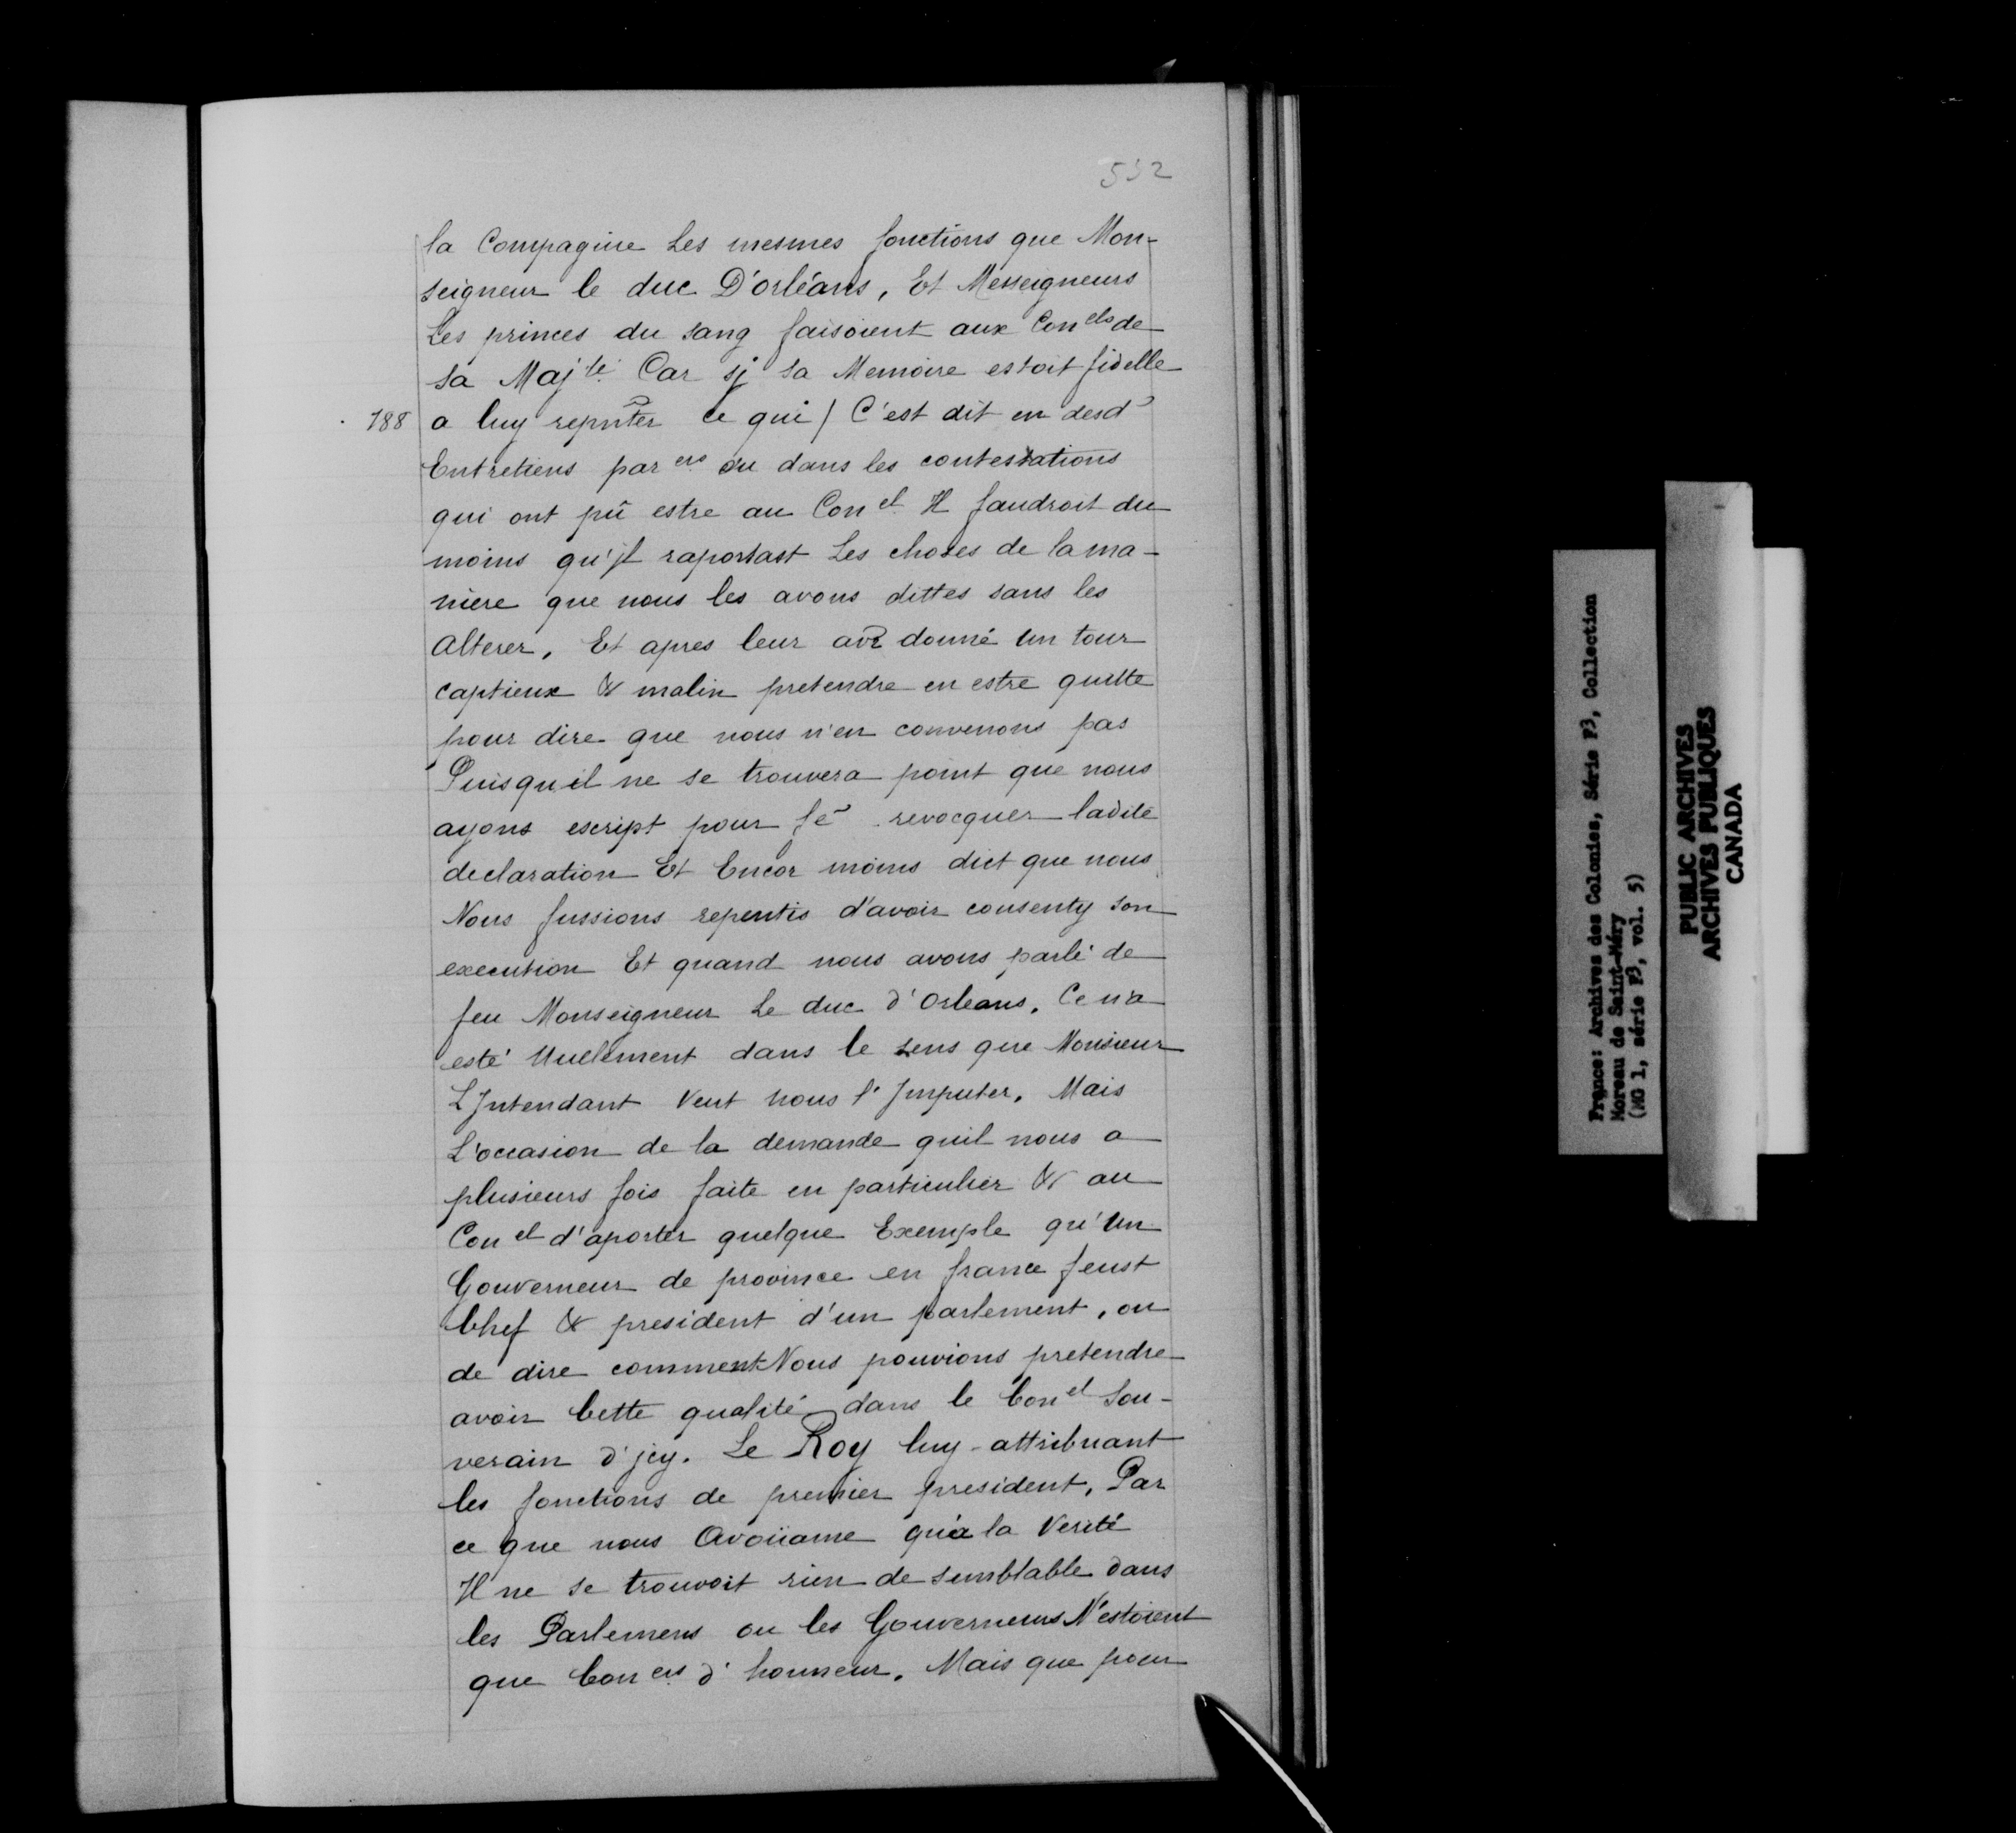 532
la Compagine Les mesmes fonctions que Mon-
seigneur le duc D'orléans, Et Messeigneurs
Les princes du sang faisoient aux Con els de
sa Maj té Car sj sa Memoire estoit fidelle
188 a luy reprñter ce qui / C'est dit en desd
Entretiens par ers ou dans les contestations
qui ont pû estre au Con el Il faudroit du
moins qu'jl raportast Les choses de la ma-
niere que nous les avons dittes sans les
alterer, Et apres leur avr donné un tour
captieux & malin pretendre en estre quitte
pour dire que nous n'en convenons pas
Puisqu'il ne se trouvera point que nous
ayons escript pour fe~ revocquer ladite
declaration Et Encor moins dict que nous
Nous fussions repentis d'avoir consenty son
execution Et quand nous avons parlé de
feu Monseigneur Le duc d'Orleans, Ce n'a
esté Nuelement dans le sens que Monsieur
L'Jntendant Veut nous l'Jmputer, Mais
L'occasion de la demande quil nous a
plusieurs fois faite en particulier & au
Con el d'aporter quelque Exemple qu'un
Gouverneur de province en france feust
Chef & president d'un parlement, ou
de dire comment Nous pouvions pretendre
avoir Cette qualité dans le Con el Sou-
verain d'jcy. Le Roy luy attribuant
les fonctions de premier president, Par
ce que nous Avoüame qu'a la Verité
Il ne se trouvoit rien de semblable dans
les Parlemens ou les Gouverneurs N'estoient
que Con ers d'honneur, Mais que pour
France: Archives des Colonies, Série F3, Collection
Moreau de Saint-Méry
(MG 1, série F3, vol. 5)
PUBLIC ARCHIVES
ARCHIVES PUBLIQUES
CANADA